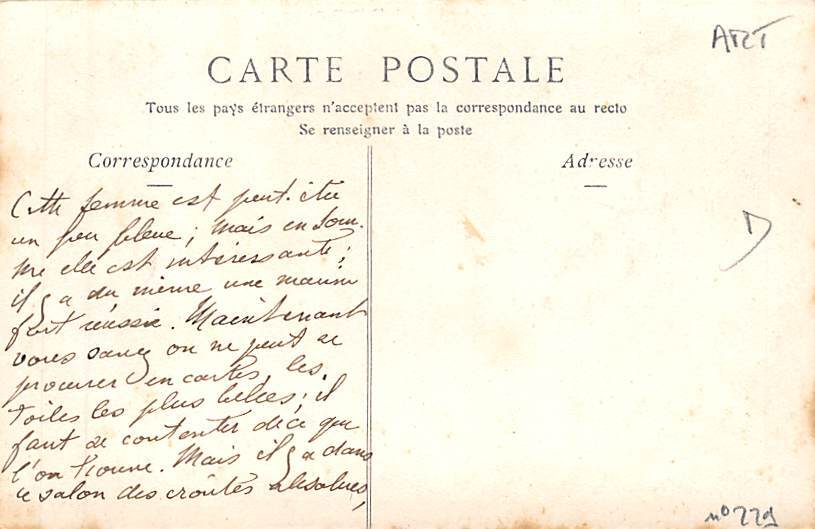 ART
CARTE POSTALE
Tous les pays étrangers n'acceptent pas la correspondance au recto
Se renseigner à la poste
Correspondance
Adresse
Cette femme est peut-être
un peu bleue; mais en som-
me elle est intéressante;
il y a du même une
fort réussie. Maintenant
vous savez on ne peut se
procurer en cartes, les
toiles les plus belles; il
faut se contenter de ce que
l'on trouve. Mais il y a dans
ce salon des croûtes absolues,
nº 229